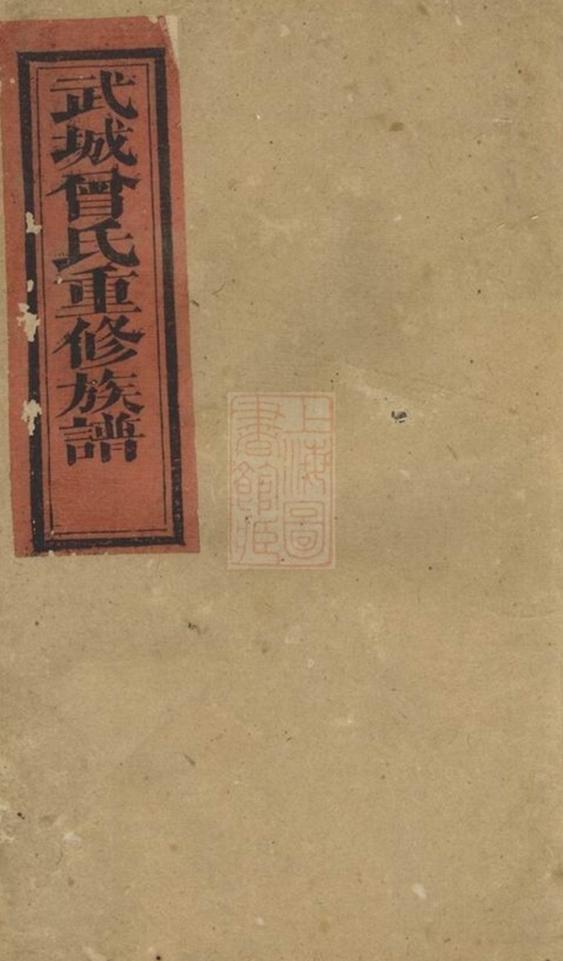 武城曾氏重修族譜
上海圖
書館藏